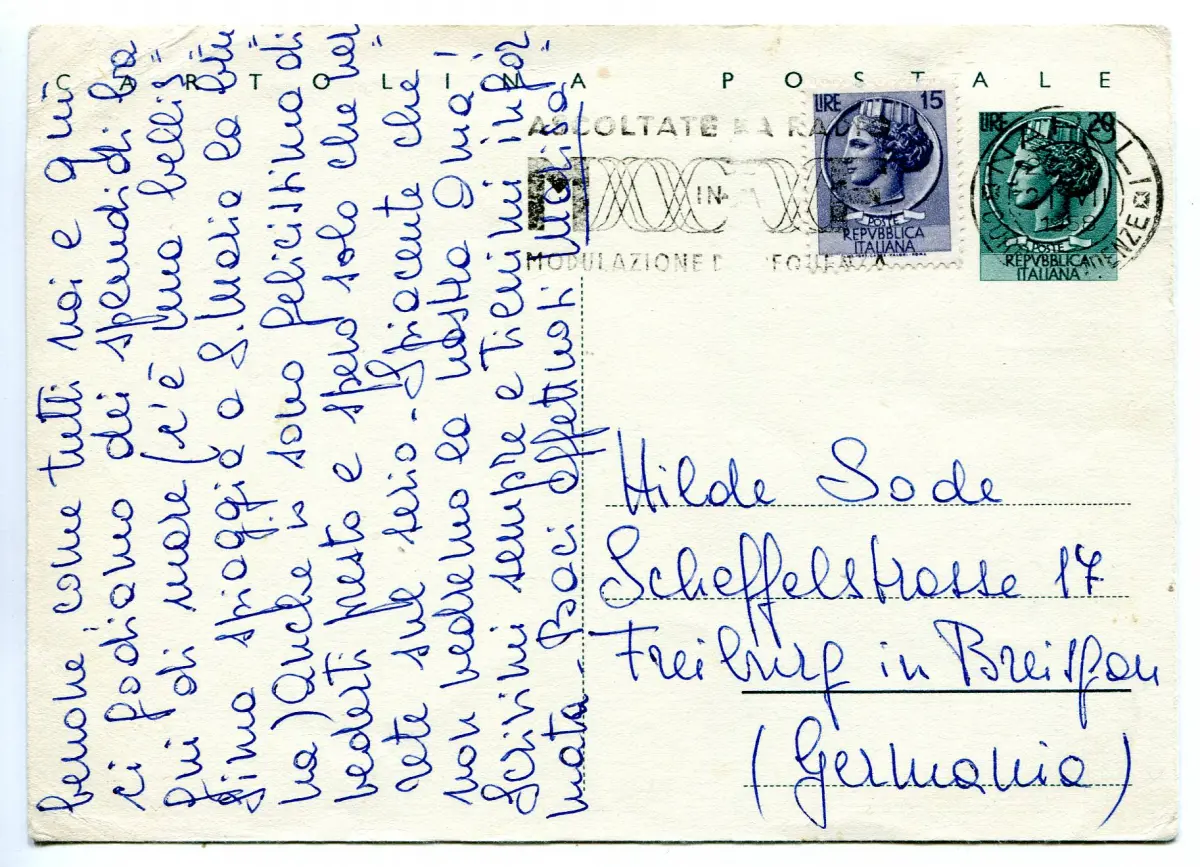 CARTOLINA POSTALE
ASCOLTATE LA RADIO
IN
MODULAZIONE DI FREQUENZA
LIRE 15
POSTE
REPVBBLICA
ITALIANA
LIRE 20
POSTE
REPVBBLICA
ITALIANA
VI
1958
benone, come tutti noi e qui
ci godiamo dei splendidi ba
gni di mare (c'è una bellis=
sima spiaggia a S. Maria la bru
na) Anche io sono felicissima di
vederti presto e spero solo che ver=
rete sul serio - Spiacente che
non vedremo la vostra Omá!
Scrivimi sempre e tienimi infor=
mata - Baci affettuosi Marlisa
Hilde Sode
Scheffelstrasse 17
Freiburg in Breisgau
(Germania)